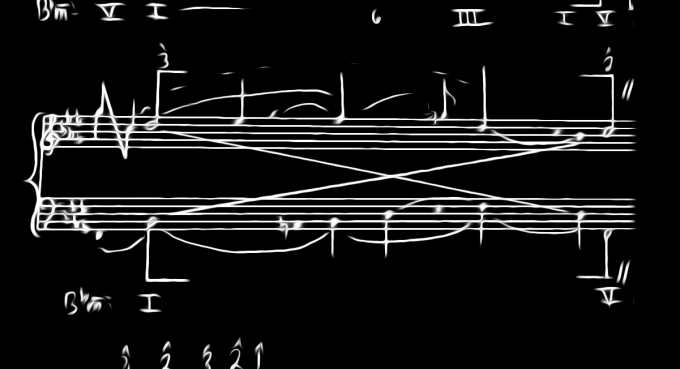 B♭m: V I 6 III I V
3̂ 2̂
B♭m: I V
3̂ 2̂ 3̂ 2̂ 1̂